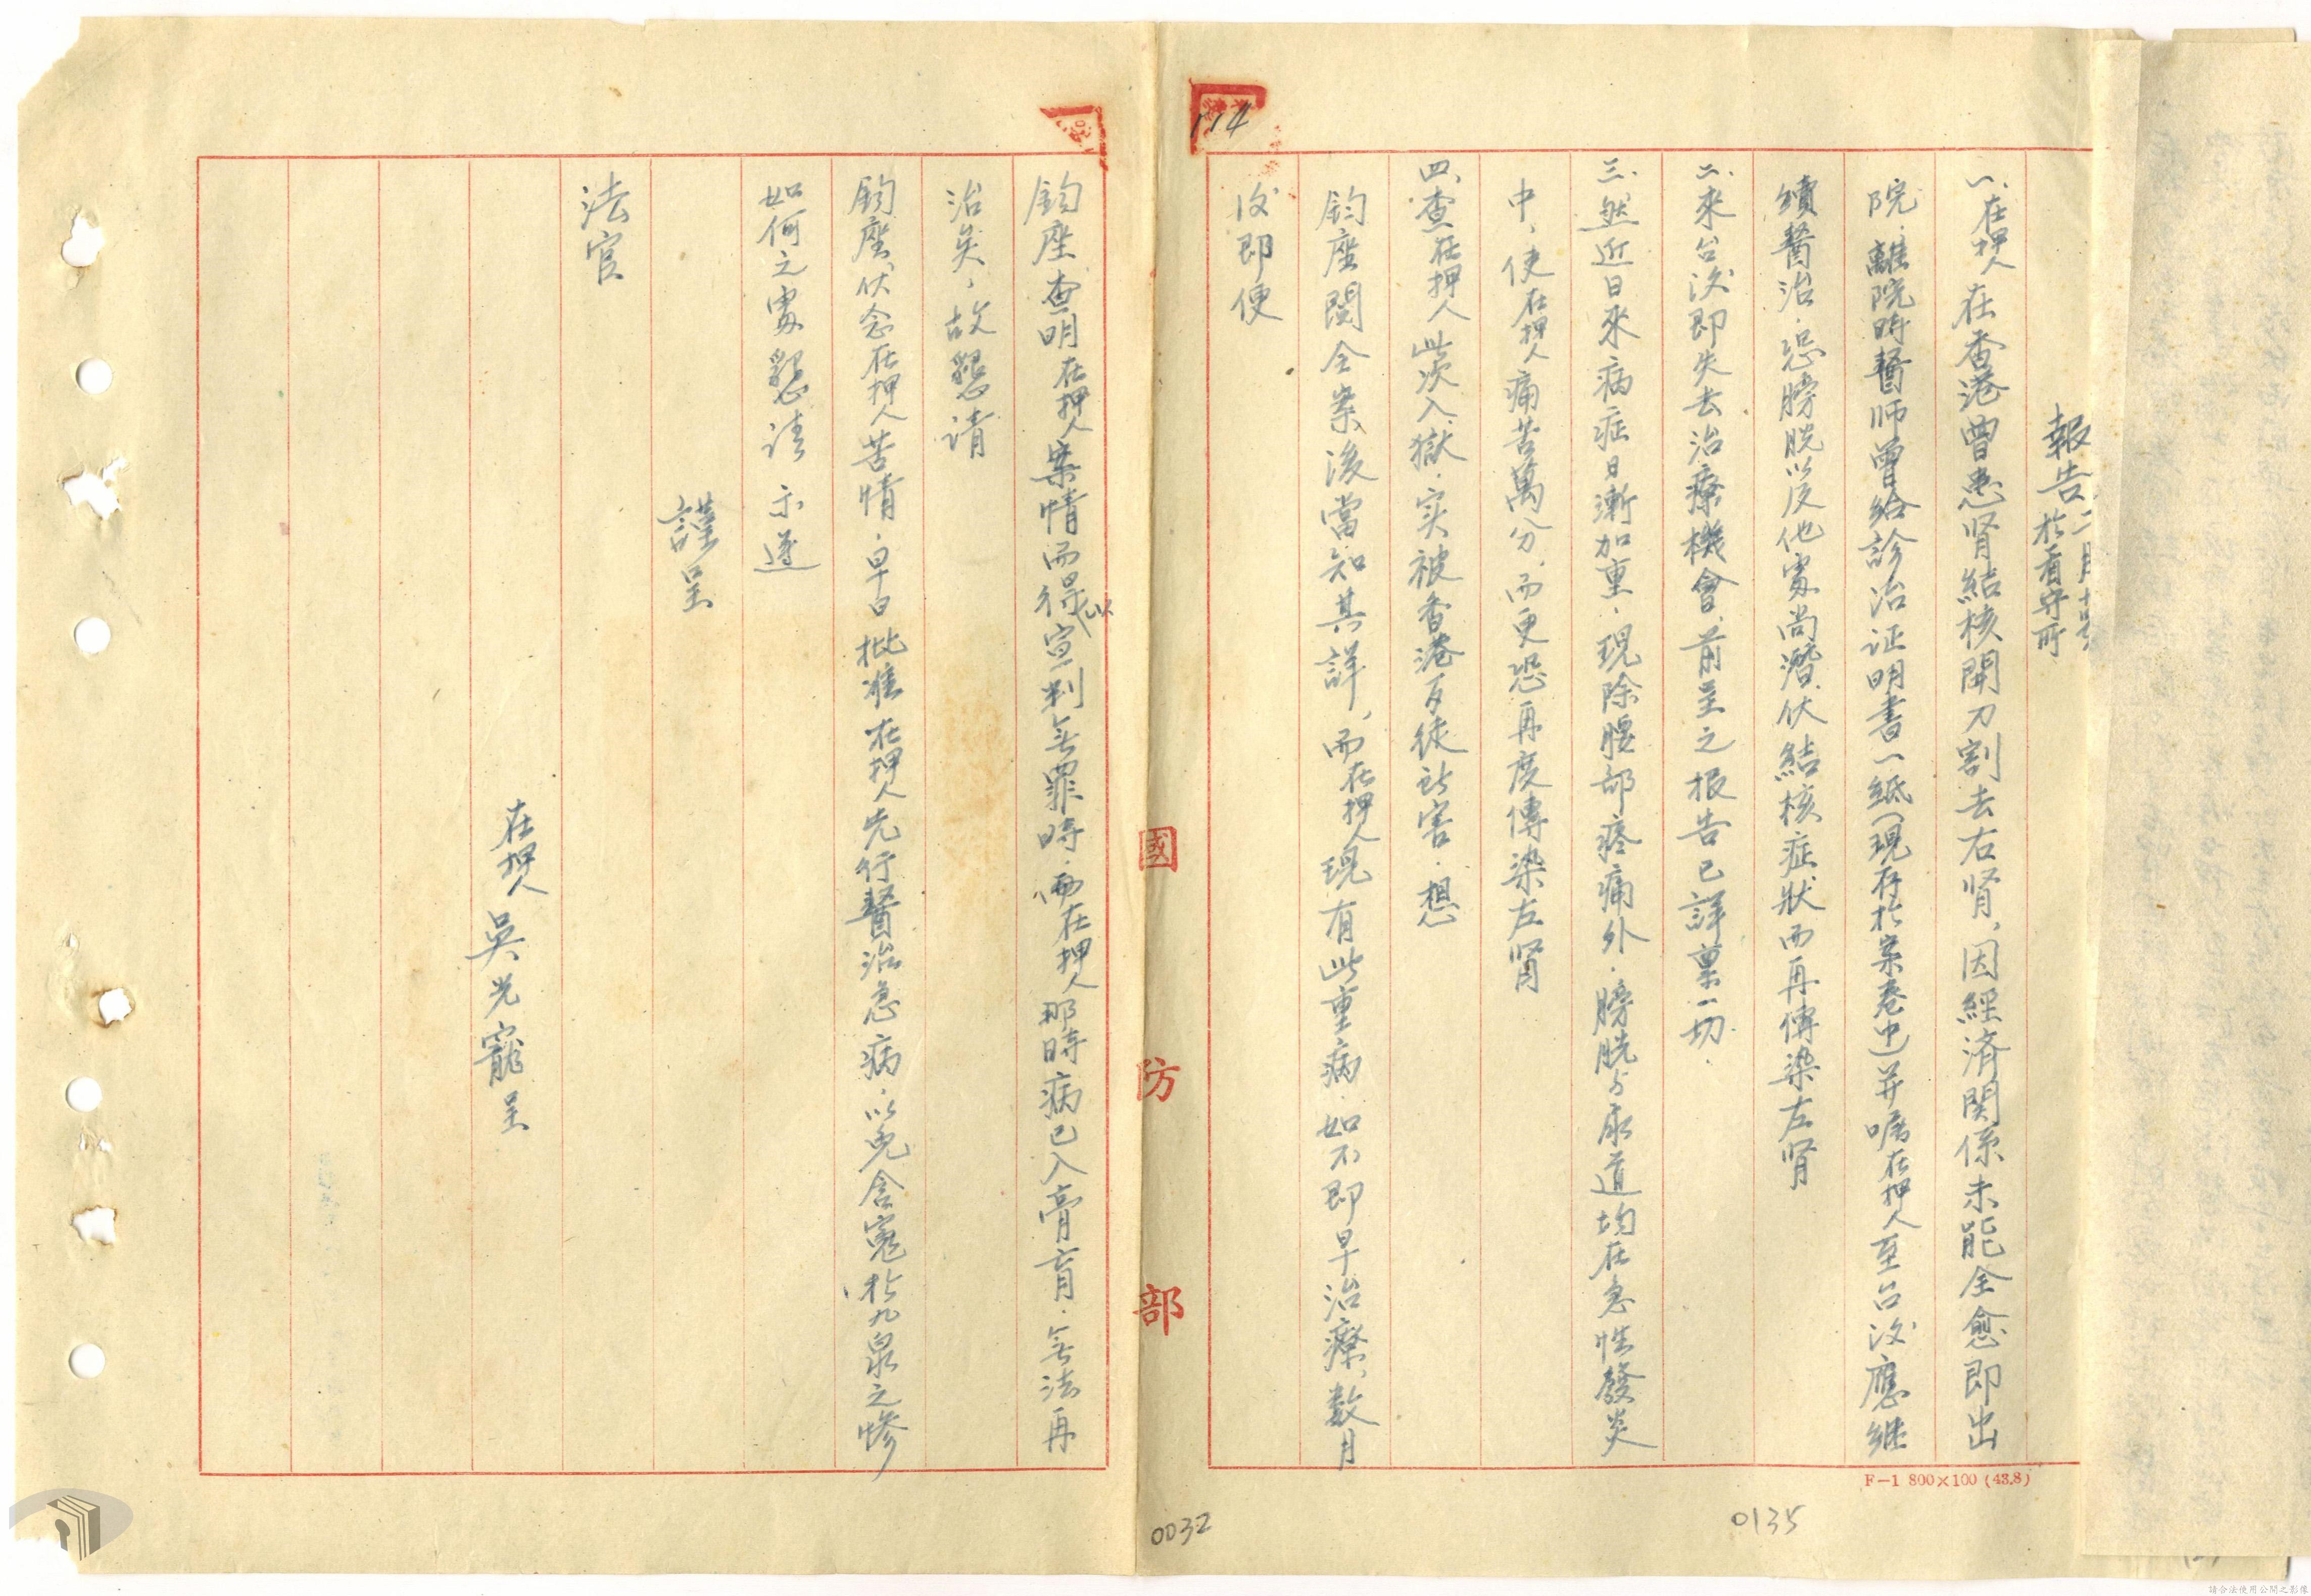 報告 二月十
於看守所
一、在押人在香港曾患肾結核開刀割去右肾，因經済関係未能全愈即出
院．離院時醫师曾給診治证明書一紙（現存於案卷中）并嘱在押人至台后應继
續醫治．恐膀胱以及他處尚潛伏結核症狀而再傳染左肾
二、來台后即失去治療機會．前呈之报告已詳稟一切．
三、然近日來病症日漸加重．現除腰部疼痛外．膀胱与尿道均在急性發炎
中，使在押人痛苦萬分，而更恐再度傳染左肾
四、查在押人此次入獄．实被香港歹徒所害．想
鈞座閱全案後當知其詳，而在押人現有此重病．如不即早治療，数月
后即便
鈞座查明在押人案情而得以宣判無罪時．而在押人那時病已入膏肓．無法再
治矣，故懇请
鈞座，伏念在押人苦情．早日批准在押人先行醫治急病．以免含寃於九泉之惨
如何之處懇请 示遵
謹呈
法官
在押人 吳光寵呈
國防部
114
F-1 800×100 (43.8)
0032
0135
請合法使用公開之影像